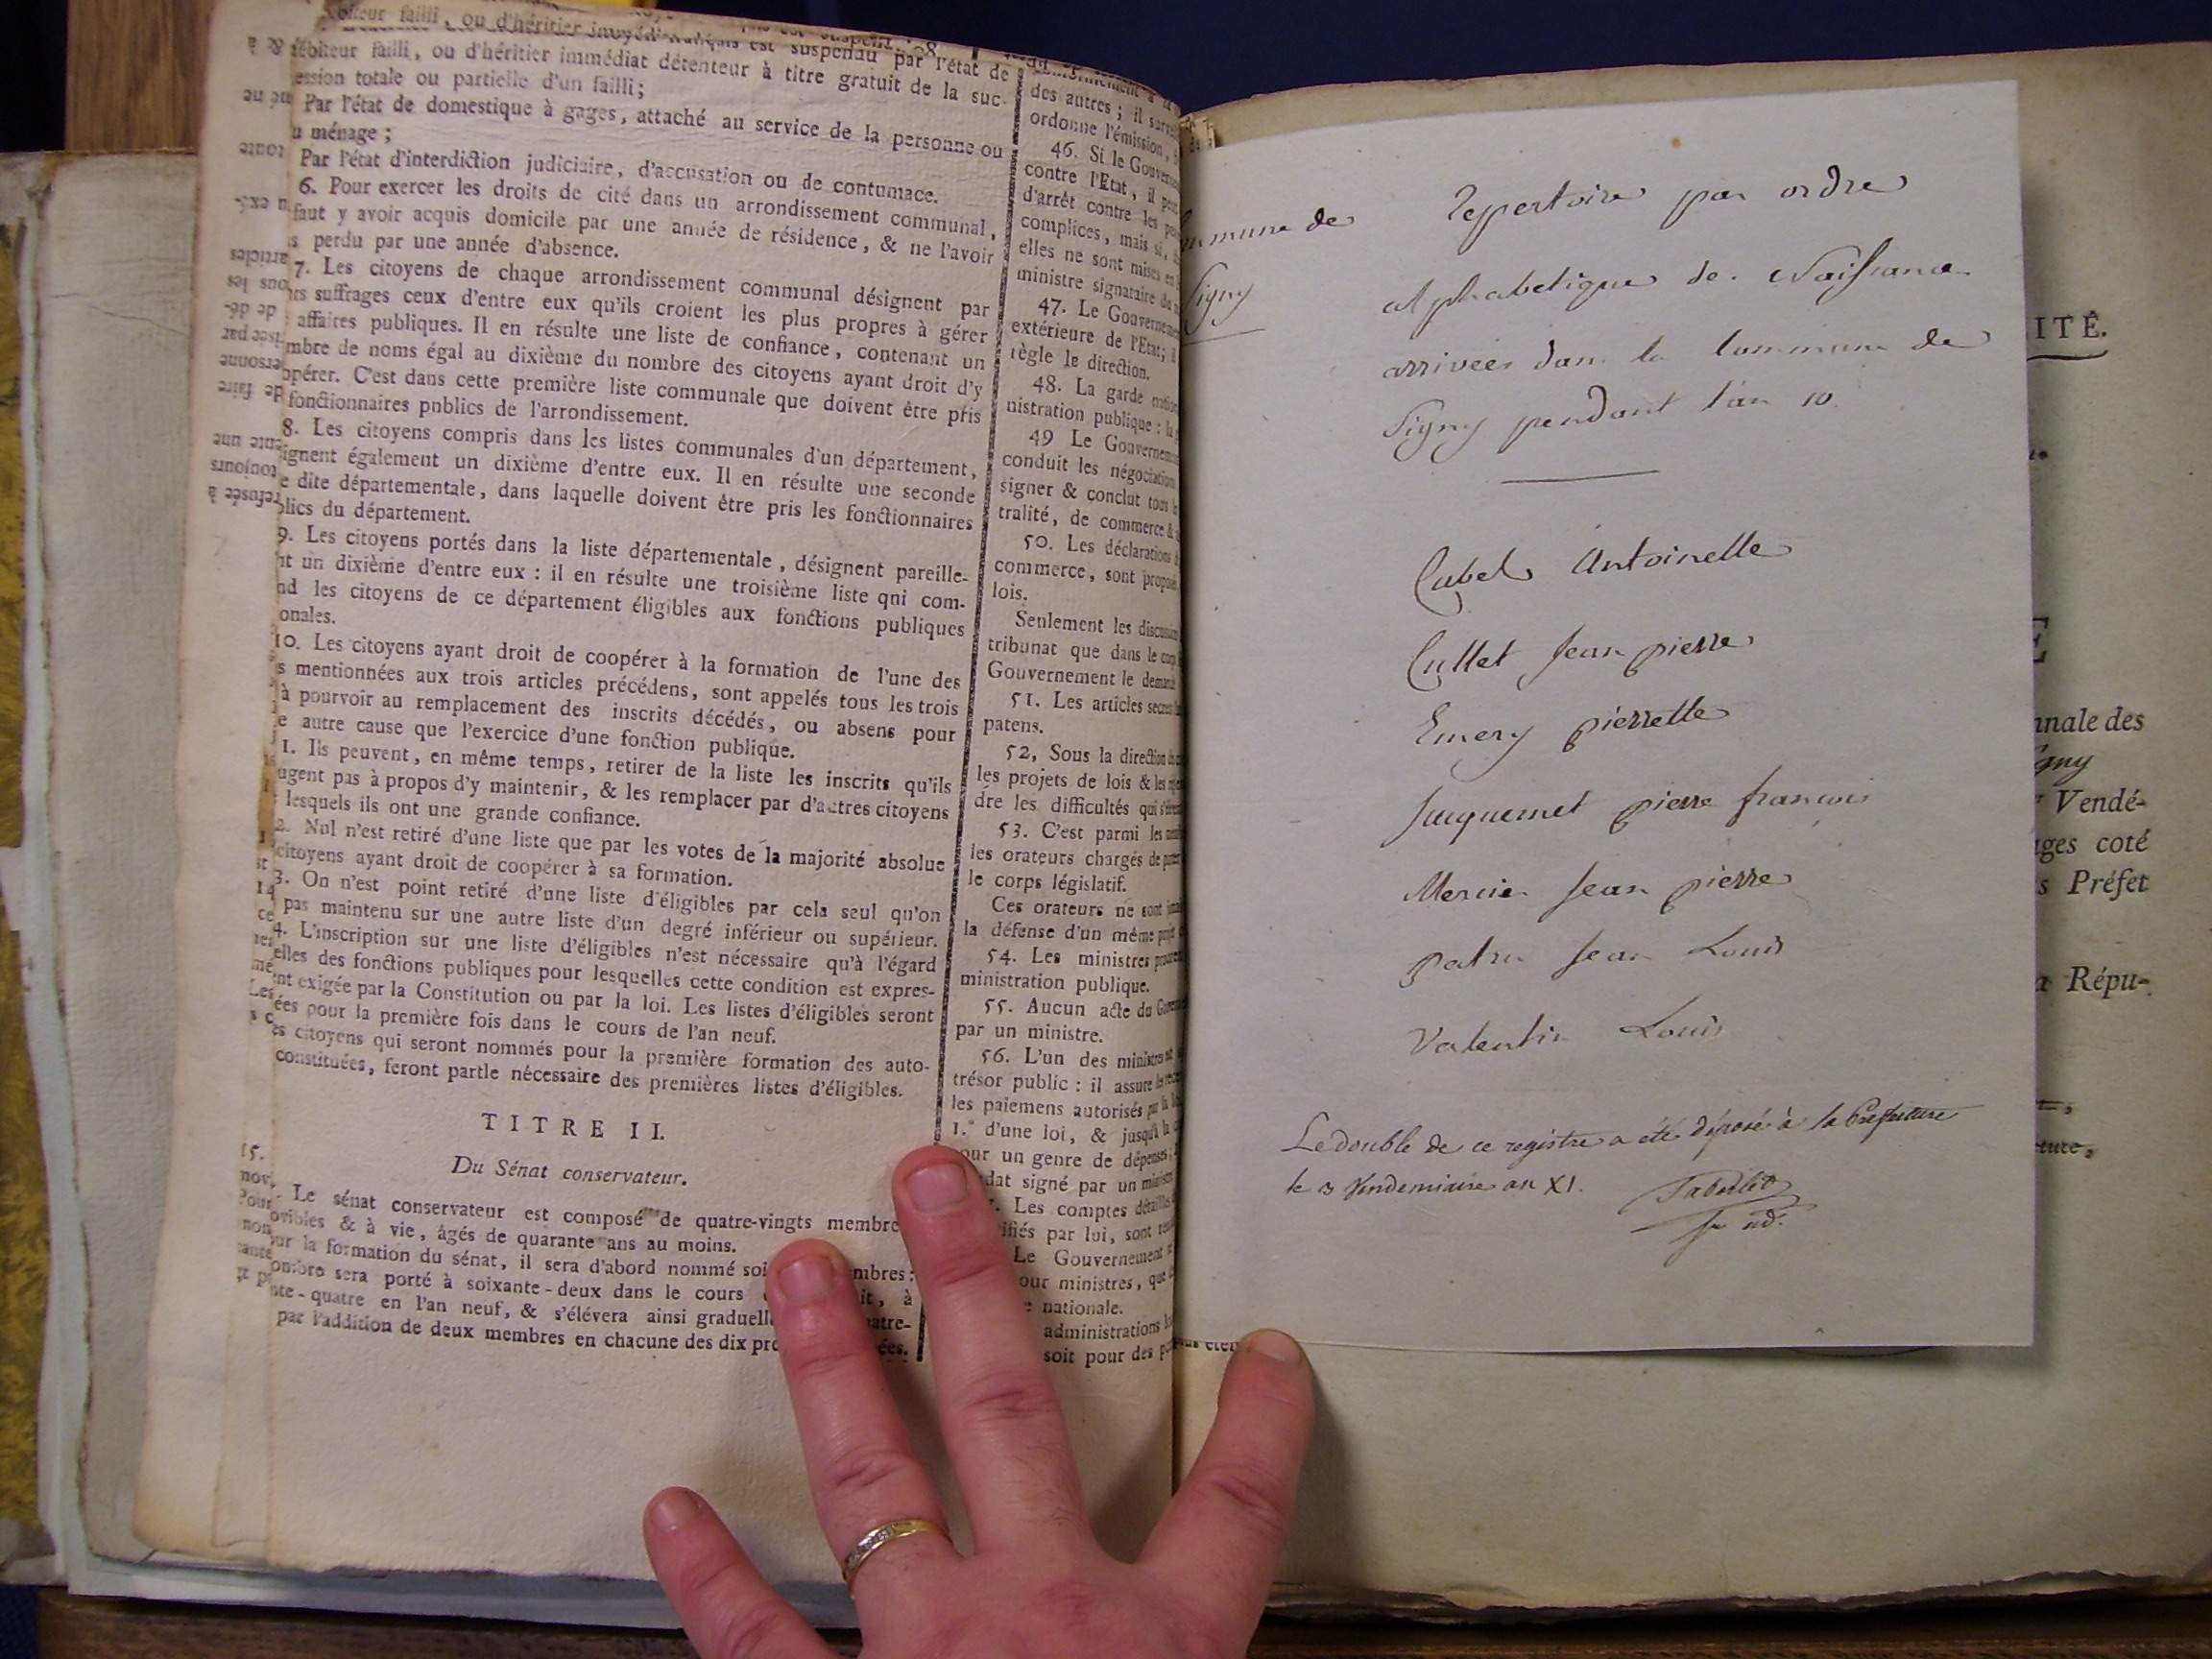 débiteur failli, ou d'héritier immédiat détenteur à titre gratuit de la suc-
ession totale ou partielle d'un failli;
Par l'état de domestique à gages, attaché au service de la personne ou
u ménage;
Par l'état d'interdiction judiciaire, d'accusation ou de contumace.
6. Pour exercer les droits de cité dans un arrondissement communal,
faut y avoir acquis domicile par une année de résidence, & ne l'avoir
s perdu par une année d'absence.
7. Les citoyens de chaque arrondissement communal désignent par
rs suffrages ceux d'entre eux qu'ils croient les plus propres à gérer
affaires publiques. Il en résulte une liste de confiance, contenant un
mbre de noms égal au dixième du nombre des citoyens ayant droit d'y
opérer. C'est dans cette première liste communale que doivent être pris
fonctionnaires pnblics de l'arrondissement.
8. Les citoyens compris dans les listes communales d'un département,
ignent également un dixième d'entre eux. Il en résulte une seconde
e dite départementale, dans laquelle doivent être pris les fonctionnaires
blics du département.
9. Les citoyens portés dans la liste départementale, désignent pareille-
nt un dixième d'entre eux : il en résulte une troisième liste qni com-
nd les citoyens de ce département éligibles aux fonctions publiques
onales.
10. Les citoyens ayant droit de coopérer à la formation de l'une des
s mentionnées aux trois articles précédens, sont appelés tous les trois
à pourvoir au remplacement des inscrits décédés, ou absens pour
e autre cause que l'exercice d'une fonction publique.
1. Ils peuvent, en même temps, retirer de la liste les inscrits qu'ils
ugent pas à propos d'y maintenir, & les remplacer par d'autres citoyens
lesquels ils ont une grande confiance.
2. Nul n'est retiré d'une liste que par les votes de la majorité absolue
citoyens ayant droit de coopérer à sa formation.
3. On n'est point retiré d'une liste d'éligibles par cela seul qu'on
pas maintenu sur une autre liste d'un degré inférieur ou supérieur.
4. L'inscription sur une liste d'éligibles n'est nécessaire qu'à l'égard
elles des fonctions publiques pour lesquelles cette condition est expres-
nt exigée par la Constitution ou par la loi. Les listes d'éligibles seront
ées pour la première fois dans le cours de l'an neuf.
es citoyens qui seront nommés pour la première formation des auto-
constituées, feront partle nécessaire des premières listes d'éligibles.
TITRE II.
Du Sénat conservateur.
15. Le sénat conservateur est composé de quatre-vingts membre
ovibles & à vie, âgés de quarante ans au moins.
ur la formation du sénat, il sera d'abord nommé soi mbres:
ombre sera porté à soixante-deux dans le cours it, à
nte-quatre en l'an neuf, & s'élévera ainsi graduell atre-
par l'addition de deux membres en chacune des dix pre ées.
des autres; il surve
ordonne l'émission,
46. Si le Gouverne
contre l'Etat, il peut
d'arrêt contre les
complices, mais si,
elles ne sont mises en
ministre signataire du
47. Le Gouvernemen
extérieure de l'Etat; il
règle le direction.
48. La garde nation
nistration publique : la
49 Le Gouvernem
conduit les négociation
signer & conclut tous
tralité, de commerce &
50. Les déclarations
commerce, sont propos
lois.
Seulement les discussion
tribunat que dans le corp
Gouvernement le demand
51. Les articles secrets
patens.
52, Sous la direction
les projets de lois & les
dre les difficultés qui s'élèvent
53. C'est parmi les mem
les orateurs chargés de porter
le corps législatif.
Ces orateurs ne sont jamais
la défense d'un même projet
54. Les ministres procurent
ministration publique.
55. Aucun acte du Gouver
par un ministre.
56. L'un des ministres
trésor public : il assure les
les paiemens autorisés par la
1.° d'une loi, & jusqu'à la
our un genre de dépenses;
dat signé par un ministre
Les comptes détaillés
ifiés par lui, sont
Le Gouvernement
our ministres, que
e nationale.
administrations
soit pour des
mmune de
Signy
Repertoire par ordre
alphabetique de Naissance
arrivées dans la Commune de
Signy pendant l'an 10
Cubel Antoinette
Cullet Jean pierre
Emery pierrette
Juquemet pierre francois
Mercier Jean pierre
patru Jean Louis
Valentin Louis
Le double de ce registre a été déposé à la Prefecture
le 3 Vendemiaire an XI.
ITÉ.
E
nnale des
gny
Vendé-
ges coté
s Préfet
a Répu-
ture,